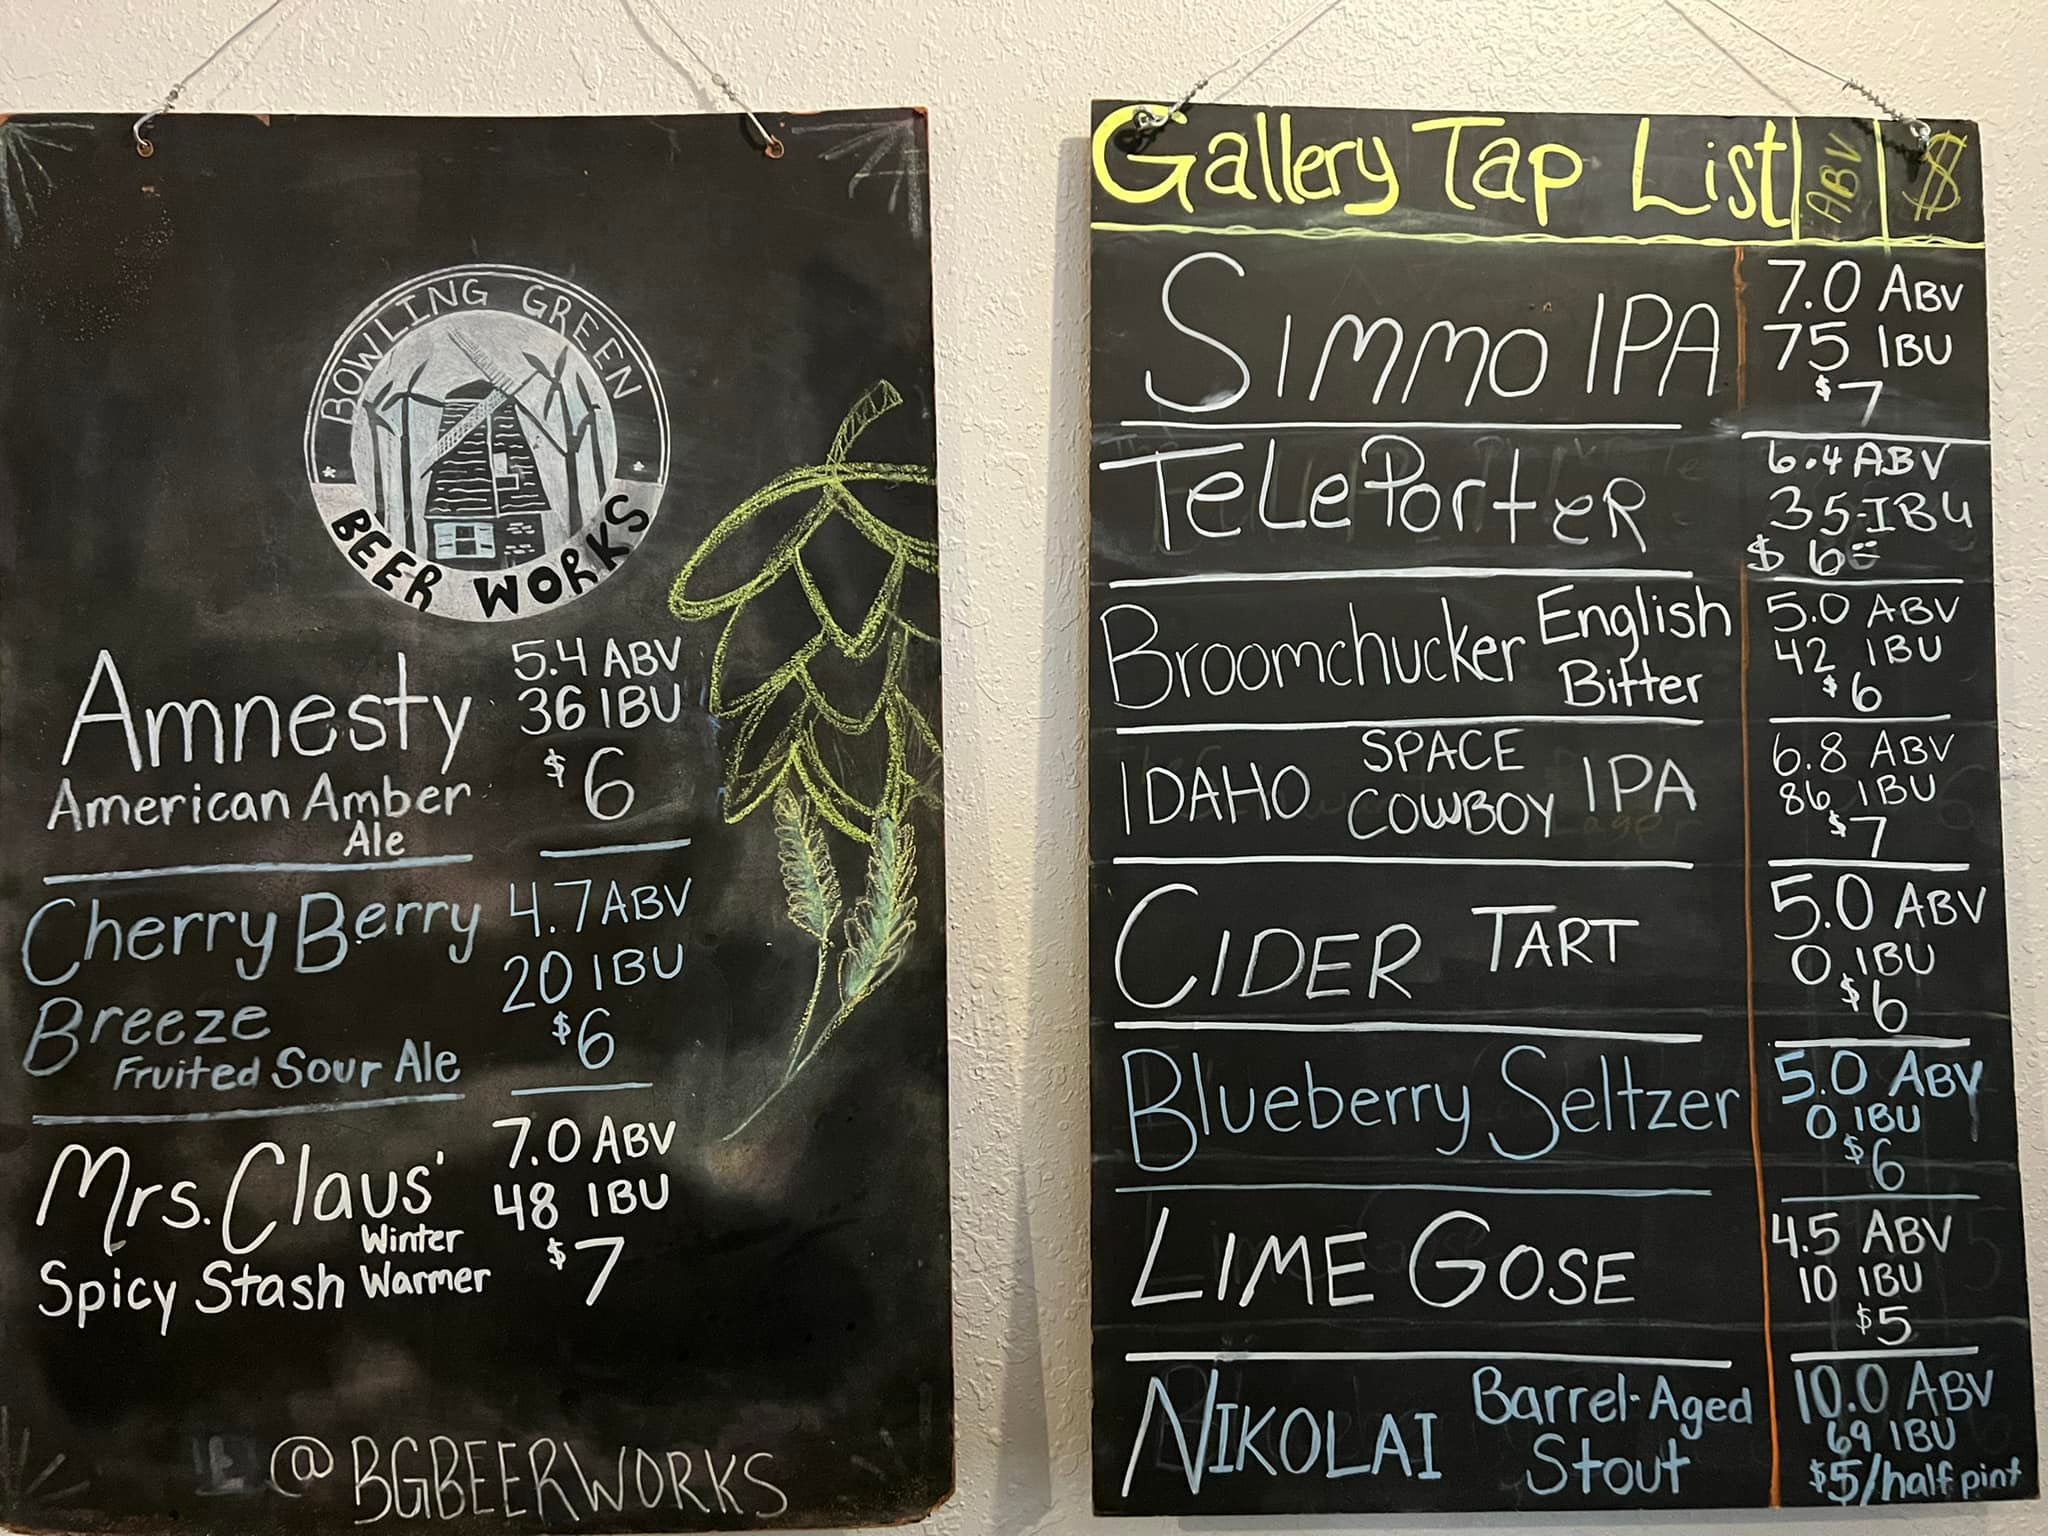 BOWLING GREEN
BEER WORKS
Amnesty
American Amber
Ale
5.4 ABV
36 IBU
$6
Cherry Berry
Breeze
Fruited Sour Ale
4.7 ABV
20 IBU
$6
Mrs. Claus'
Spicy Stash
Winter
Warmer
7.0 ABV
48 IBU
$7
@BGBEERWORKS
Gallery Tap List
ABV
$
SIMMO IPA
7.0 ABV
75 IBU
$7
TelePorteR
6.4 ABV
35 IBU
$6
Broomchucker
English
Bitter
5.0 ABV
42 IBU
$6
IDAHO
SPACE
COWBOY
IPA
6.8 ABV
86 IBU
$7
CIDER TART
5.0 ABV
0 IBU
$6
Blueberry Seltzer
5.0 ABV
0 IBU
$6
LIME GOSE
4.5 ABV
10 IBU
$5
NIKOLAI
Barrel-Aged
Stout
10.0 ABV
69 IBU
$5/half pint